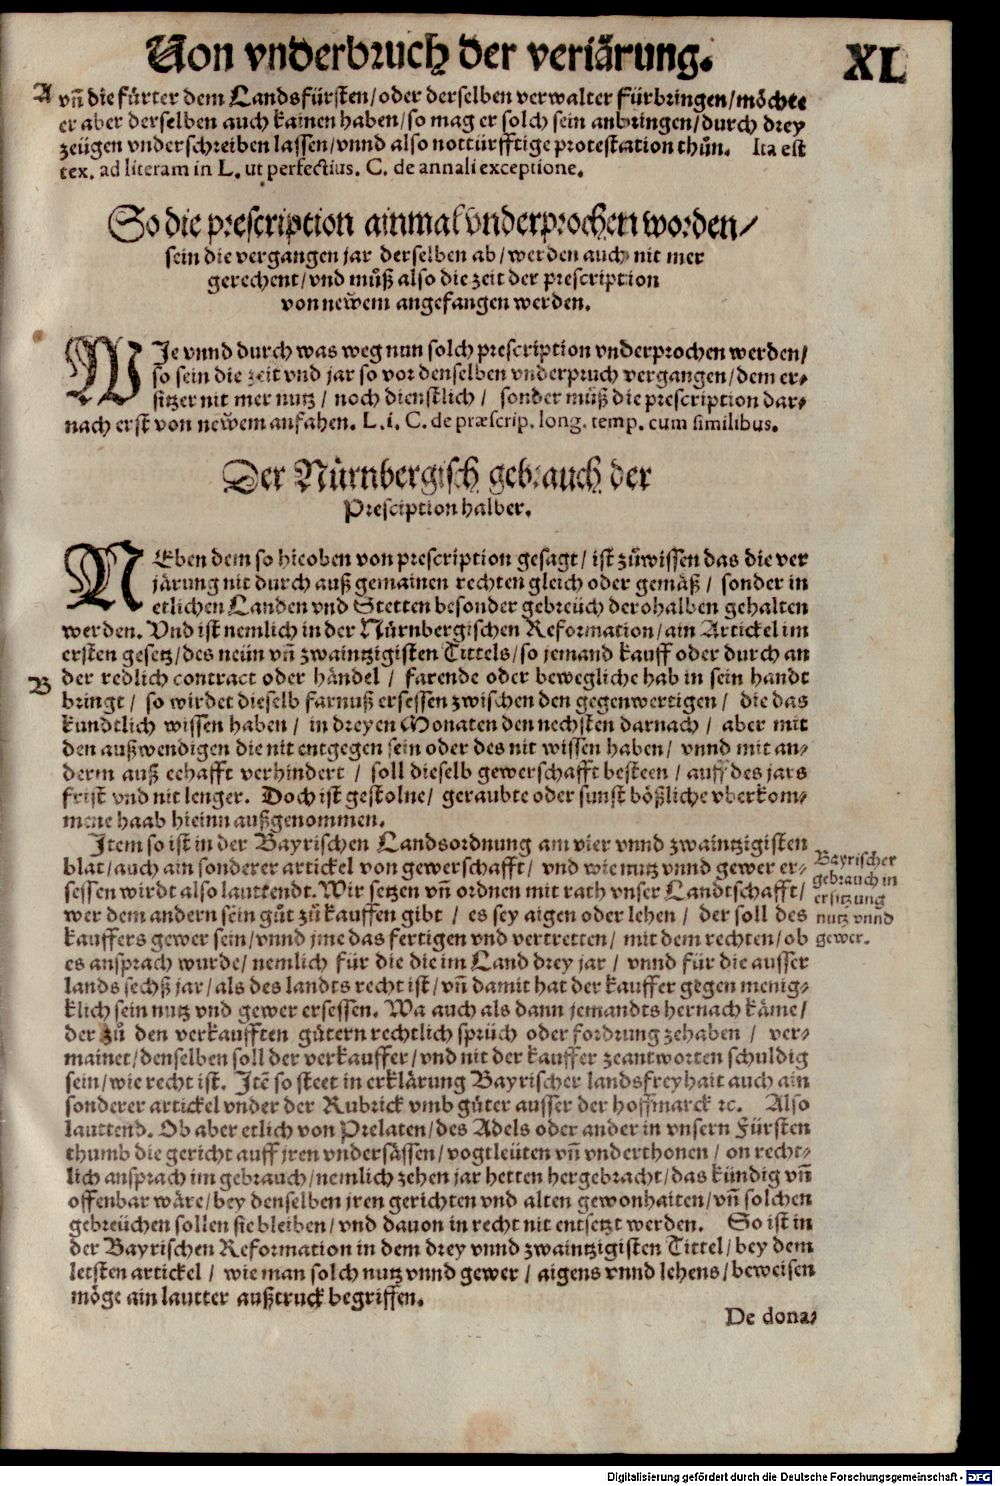 Von vnderbruch der veriärung. XL
A vñ die fürter dem Landsfürsten/oder derselben verwalter fürbringen/möchte
er aber derselben auch kainen haben/so mag er solch sein anbringen/durch drey
zeügen vnderschreiben lassen/vnnd also notturfftige protestation thůn. Ita est
tex. ad literam in L. ut perfectius. C. de annali exceptione.
So die prescription ainmal vnderprochen worden/
sein die vergangen jar derselben ab/werden auch nit mer
gerechent/vnd můß also die zeit der prescription
von newem angefangen werden.
WIe vnnd durch was weg nun solch prescription vnderprochen werden/
so sein die zeit vnd jar so vor denselben vnderpruch vergangen/dem er-
sitzer nit mer nutz/ noch dienstlich/ sonder můß die prescription dar-
nach erst von newem anfahen. L. i. C. de præscrip. long. temp. cum similibus.
Der Nürnbergisch gebrauch der
Presciption halber.
NEben dem so hieoben von prescription gesagt/ ist zůwissen das die ver
järung nit durch auß gemainen rechten gleich oder gemäß/ sonder in
etlichen Landen vnd Stetten besonder gebreüch derohalben gehalten
werden. Vnd ist nemlich in der Nürnbergischen Reformation/ain Artickel im
ersten gesetz/des neün vñ zwaintzigisten Tittels/so jemand kauff oder durch an
B der redlich contract oder händel/ farende oder bewegliche hab in sein handt
bringt/ so wirdet dieselb farnuß ersessen zwischen den gegenwertigen/ die das
kundtlich wissen haben/ in dreyen Monaten den nechsten darnach/ aber mit
den außwendigen die nit entgegen sein oder des nit wissen haben/ vnnd mit an-
derm auß eehafft verhindert/ soll dieselb gewerschafft besteen/ auff des jars
frist vnd nit lenger. Doch ist gestolne/ geraubte oder sunst bößliche vberkom-
mene haab hieinn außgenommen.
Item so ist in der Bayrischen Landsordnung am vier vnnd zwaintzigisten
blat/auch ain sonderer artickel von gewerschafft/ vnd wie nutz vnnd gewer er-
sessen wirdt also lauttendt. Wir setzen vñ ordnen mit rath vnser Landtschafft/
wer dem andern sein gůt zů kauffen gibt/ es sey aigen oder lehen/ der soll des
kauffers gewer sein/vnnd jme das fertigen vnd vertretten/ mit dem rechten/ob
es ansprach wurde/nemlich für die die im Land drey jar/ vnnd für die ausser
lands sechß jar/als des landts recht ist/vñ damit hat der kauffer gegen menig-
klich sein nutz vnd gewer ersessen. Wa auch als dann jemandts hernach käme/
der zů den verkaufften gütern rechtlich sprüch oder fordrung zehaben/ ver-
mainet/denselben soll der verkauffer/vnd nit der kauffer zeantworten schuldig
sein/wie recht ist. Itē so steet in erklärung Bayrischer landsfreyhait auch ain
sonderer artickel vnder der Rubrick vmb güter ausser der hoffmarck ꝛc. Also
lauttend. Ob aber etlich von Prelaten/des Adels oder ander in vnsern Fürsten
thumb die gericht auff jren vndersässen/vogtleüten vñ vnderthonen/ on recht-
lich ansprach im gebrauch/nemlich zehen jar hetten hergebracht/das kündig vñ
offenbar wäre/bey denselben jren gerichten vnd alten gewonhaiten/vñ solchen
gebreüchen sollen sie bleiben/vnd dauon in recht nit entsetzt werden. So ist in
der Bayrischen Reformation in dem drey vnnd zwaintzigisten Tittel/bey dem
letsten artickel/ wie man solch nutz vnnd gewer/ aigens vnnd lehens/beweisen
möge ain lautter außtruck begriffen.
Bayrischer
gebrauch in
ersitzung
nutz vnnd
gewer.
De dona-
Digitalisierung gefördert durch die Deutsche Forschungsgemeinschaft - DFG